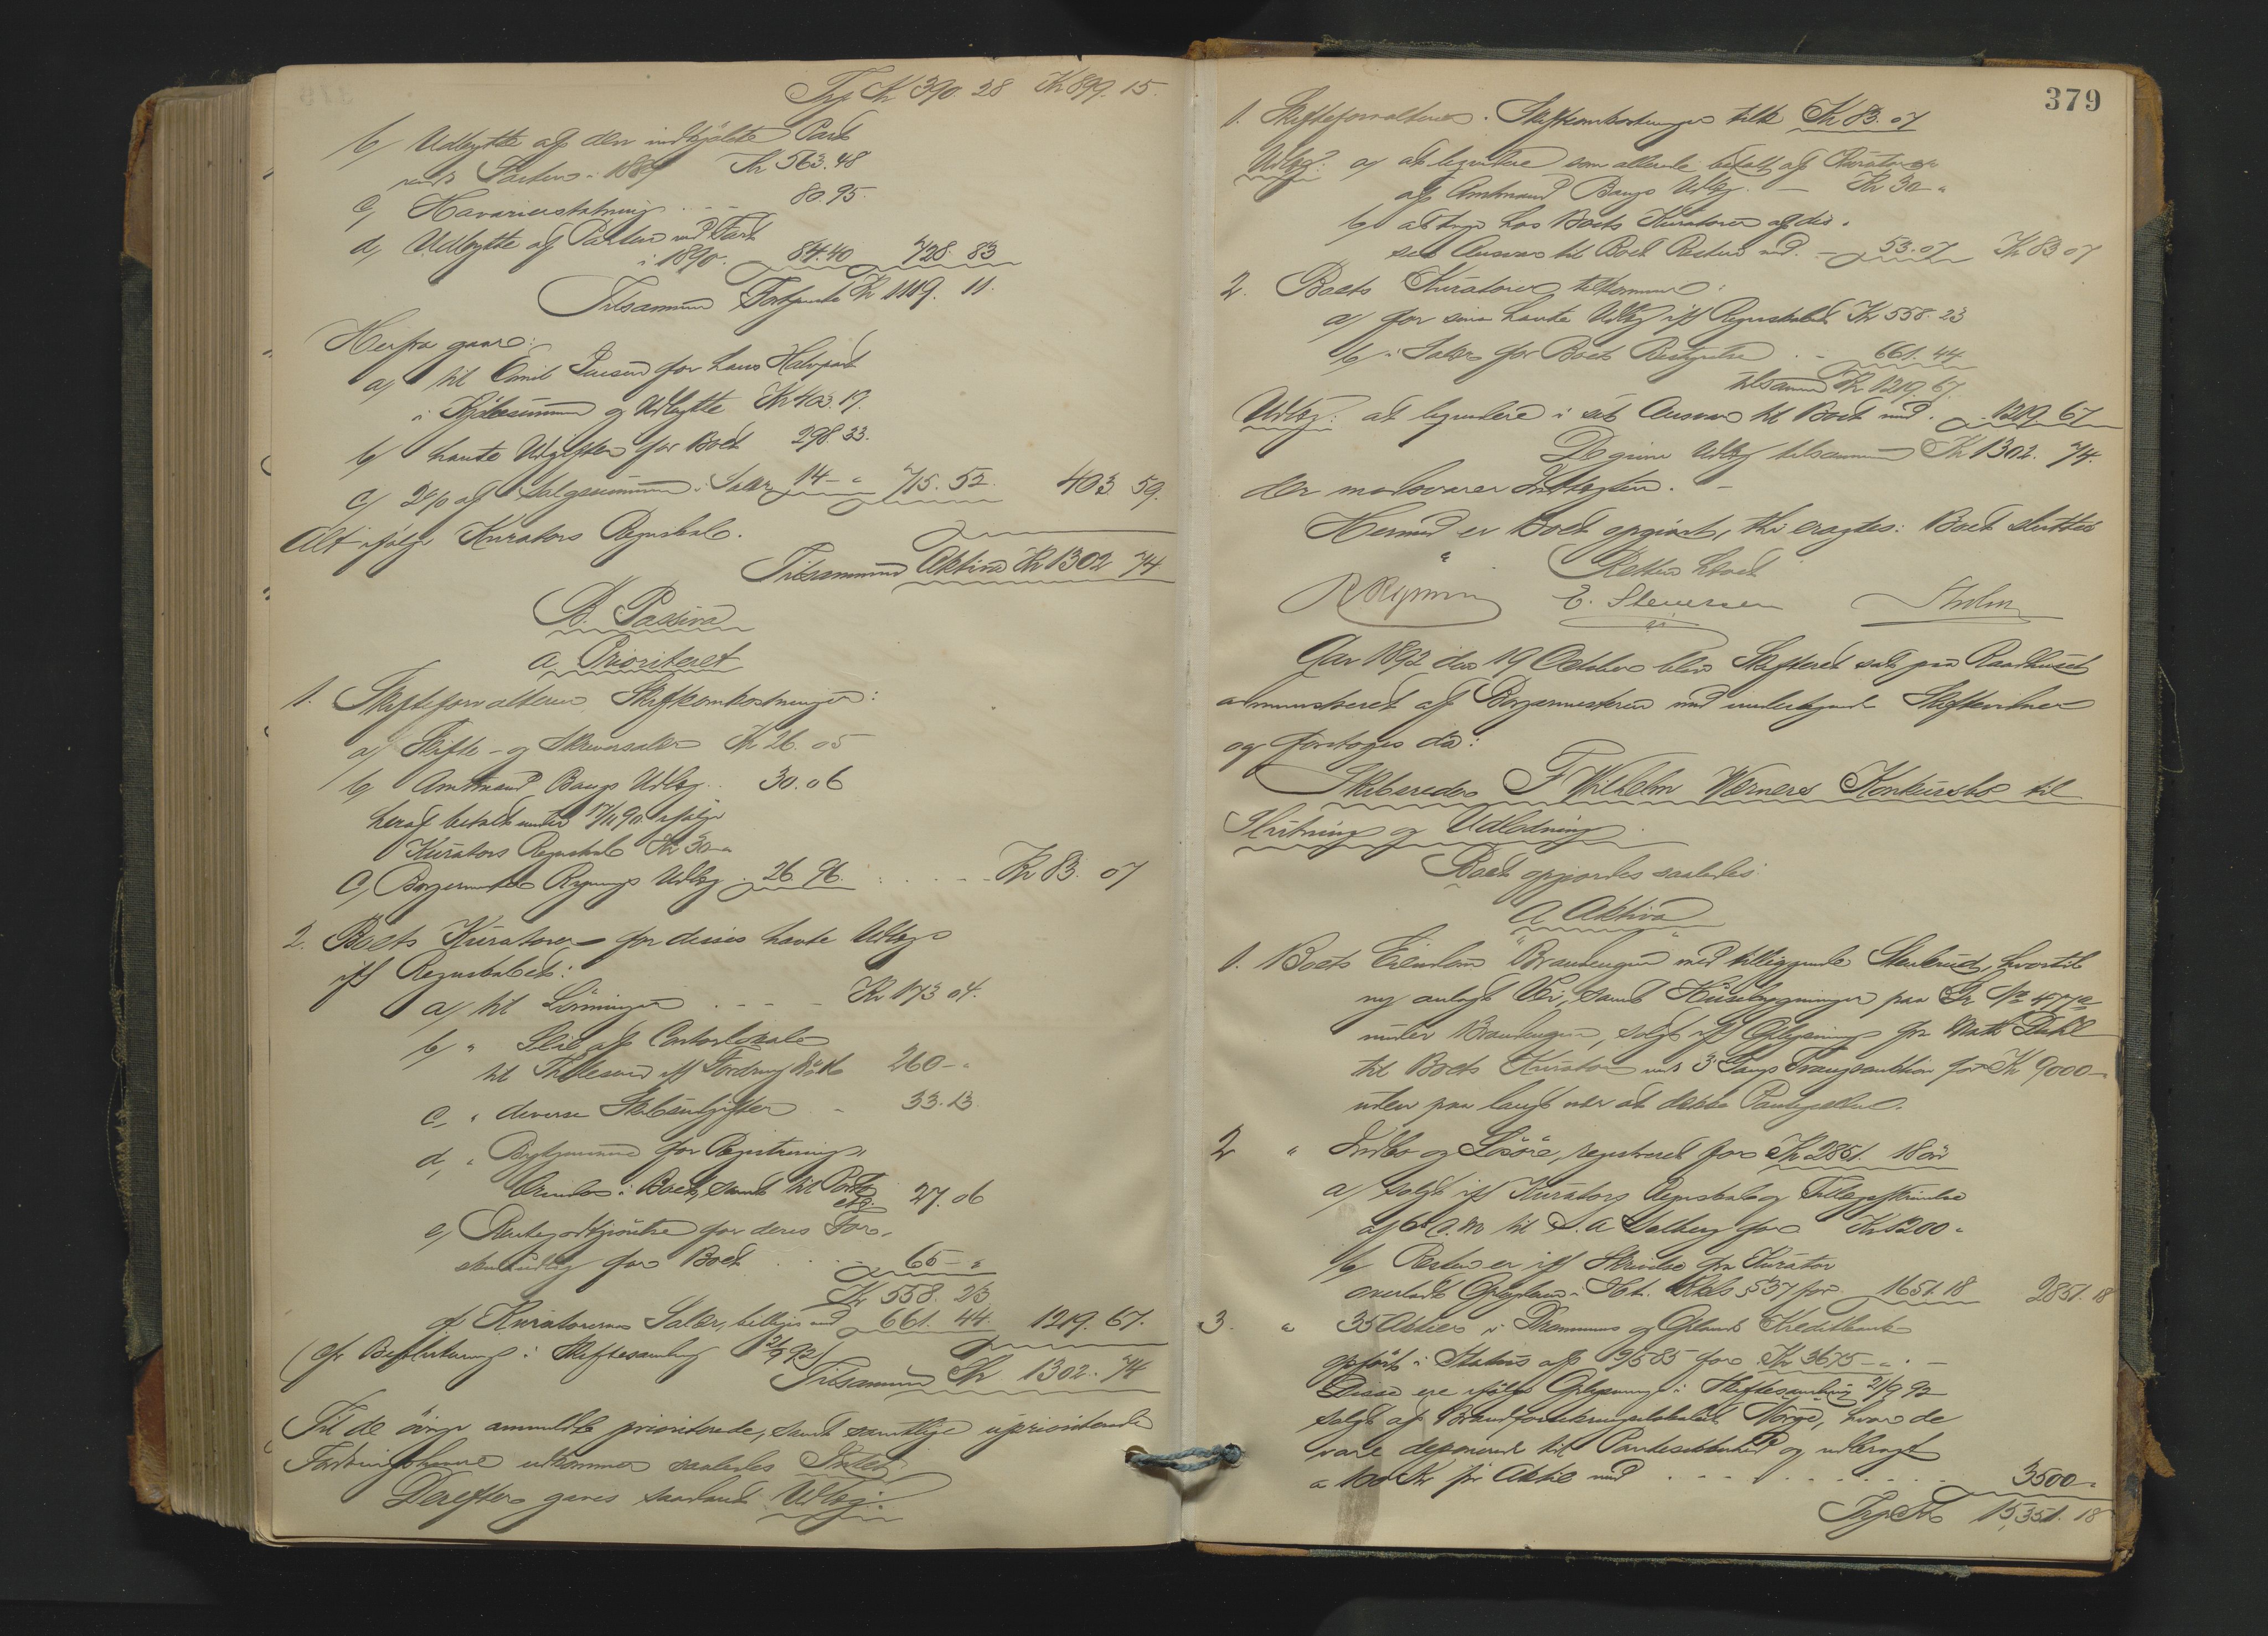 Trp Kr 390. 28 Kr 899. 15.
b) Udbytte af den indkjøbte Part
ved Farten i 1889 Kr 563.48
c) Havarierstatning . . . 80.95.
d) Udbytte af Parten ved Fart
i 1890. 84.40 728. 83
Tilsammen Kr 1119. 11.
Herfra gaar:
a) til Emil for hans Halvpart
i Kjøbesummen og Udbytte Kr 403.19.
b) havte Udgifter for Boet 298.33.
c) 2 % af Salgssummen i Salær 14 - " 715. 52. 403 59.
Alt ifølge Kurators Regnskab.
Tilsammen Aktiva Kr 1302 74
B. Passiva
a. Prioriteret
1. Skifteforvalteren Skifteomkostninger:
a) Skifte- og Skriversalær Kr 26. 05
b) Amtmand Bangs Udlæg .. 30.06
heraf betalt under 90 ifølge
Kurators Regnskab Kr 30 "
c) Borgermester Rynnings Udlæg . 26. 96. . . . . Kr 83. 07
2. Boets Kuratorer for disses havte Udlæg
iflg Regnskabet:
a) til Lønninger . . . . Kr 173 04.
b) " Leie af Contorlokale
til iflg Fordring 260 - "
c) " diverse Skibsudgifter - 33.13.
d) " for Registrering
i Boet, samt til Porto
etc. 27.06
e) Rentegodtgjørelse for deres For-
skudsudlæg for Boet . . . 65 - "
Kr 558. 23
f) Kuratorernes Salær, billiget med 661. 44. 1219. 67.
(cfr Beslutning i Skiftesamling 21/9 92)
Tilsammen Kr 1302. 74
Til de øvrige anmeldte prioriterede, samt samtlige uprioriterede
Fordringshavere udkommer saaledes Intet.
Derefter gaves saadant Udlæg:
379
1. Skifteforvalteren. Skifteomkostninger tilk Kr 83. 07
Udlæg: a) at som allerede betalt af Kurator
af Amtmand Bangs Udlæg. - Kr 30 - "
b) at hos Boets Kuratorer af dis-
ses Ansvar til Boet Resten med . - 53.07 Kr 83 07
2. Boets Kuratorer tilkommer:
a) for sine havte Udlæg iflg Regnskabet Kr 558. 23
b) i Salær for Boets Bestyrelse . - 661. 44
tilsammen Kr 1219. 67.
Udlæg: at i sit Ansvar til Boet med . 1219 67
De givne Udlæg tilsammen Kr 1302. 74.
der modsvarer Indtægten. -
Hermed er Boet opgjort, thi eragtes: Boet sluttes
Retten hævet
Rynning E. Steversen Holm
Aar 1892 den 19 Oktober blev Skifteret sat paa Raadhuset
administreret af Borgermesteren med undertegnede Skiftevidner
og foretoges da:
Skibsreder F Wilhelm Werners Konkursbo til
Slutning og Udlodning.
Boet opgjordes saaledes
A Aktiva
1. Boets Eiendom "Brandengen" med tilliggende hvortil
ny anlagt Vei, samt Husebygninger paa Gr No 477a
under Brandengen, solgt iflg Oplysning fra Dahl
til Boets Kurator ved 3 Gangs Tvangsauktion for Kr 9000 -
uden paa langt nær at dække Pantegjælden.
2 " Indbo og Løsøre, registreret for Kr 2851. 18 ør
a) solgt iflg Kurators Regnskab og Tillægsskrivelse
af til for Kr 1200 "
b) Resten er iflg Skrivelse fra Kurator
overladt i Kkls § 37 for 1651. 18 2851. 18
3. " 35 Aktier i Drammens og Oplands Kreditbank
opført i Status af 19/5 85 for Kr 3675 - " . -
Disse ere ifølge Oplysning i Skiftesamling 21/9 92
solgt af Brandforsikringsselskabet Norge, hvor de
vare deponeret til Pantesikkerhed og udbragt
a 100 Kr pr Aktie med . . . . . . . . . 3500 -
Trp Kr 15,351. 18